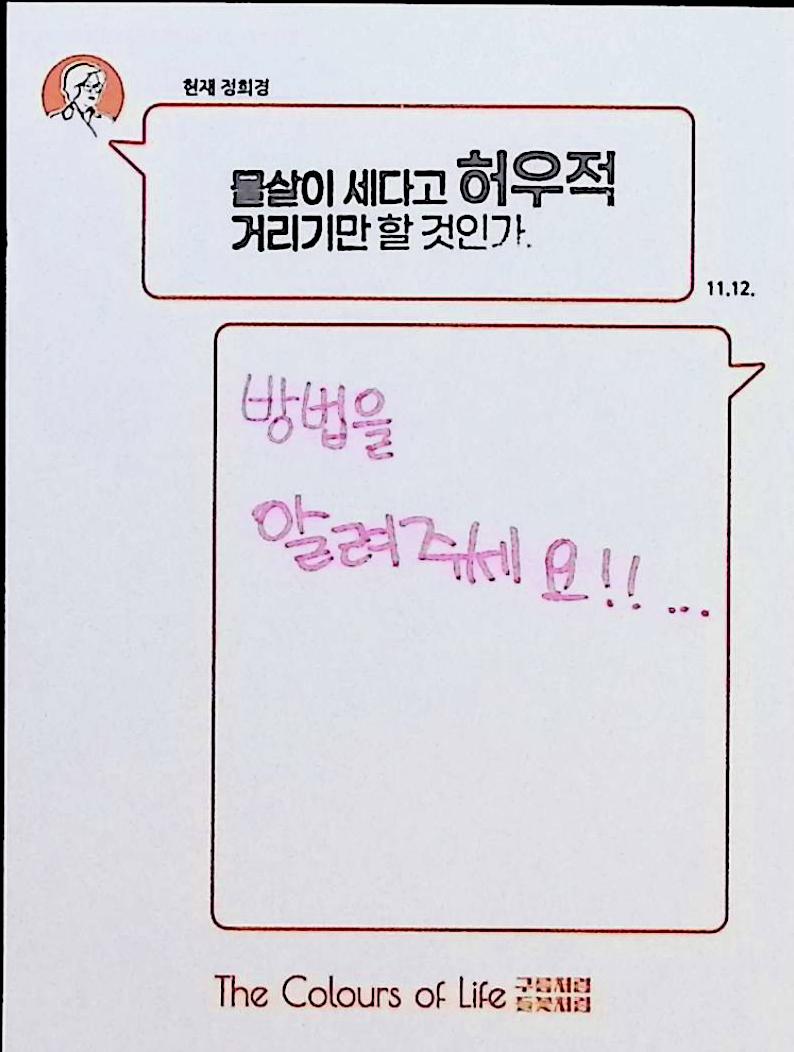 현재 정희경
물살이 세다고 허우적
거리기만 할 것인가.
11.12.
방법을
알려주세요!!...
The Colours of Life 구름처럼
들꽃처럼